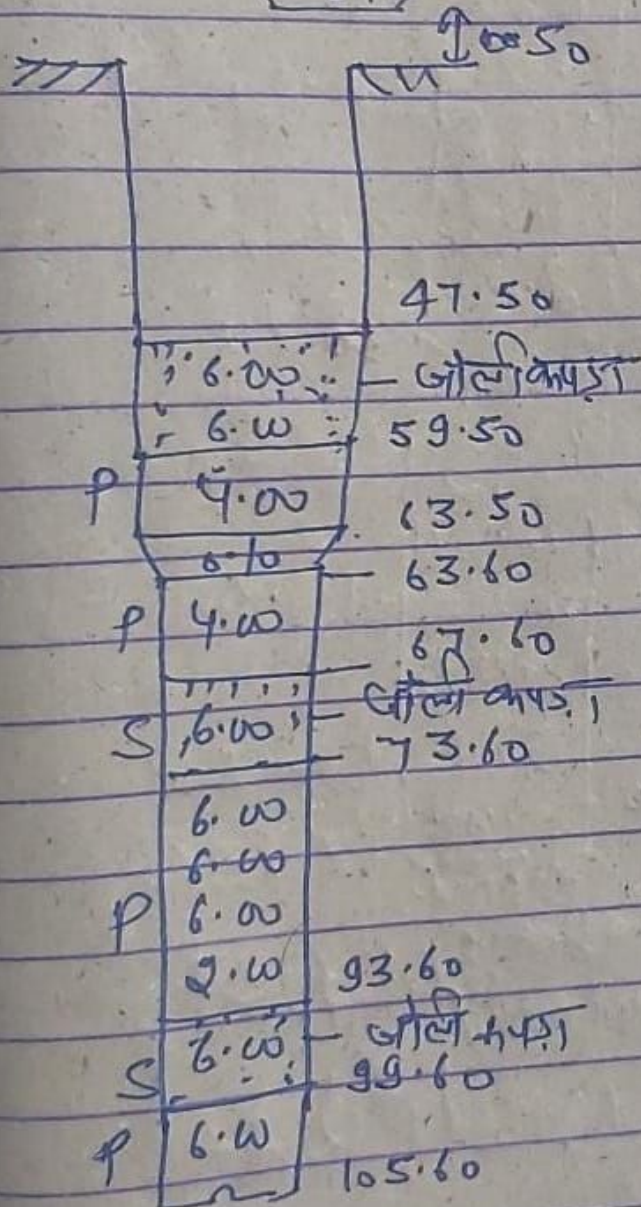 0.50
47.50
6.00 जाली कपड़ा
6.00 59.50
P 4.00 63.50
0.10 63.60
P 4.00 67.60
जाली कपड़ा
S 6.00 73.60
6.00
6.00
P 6.00
2.00 93.60
6.00 जाली कपड़ा
S 99.60
P 6.00
105.60